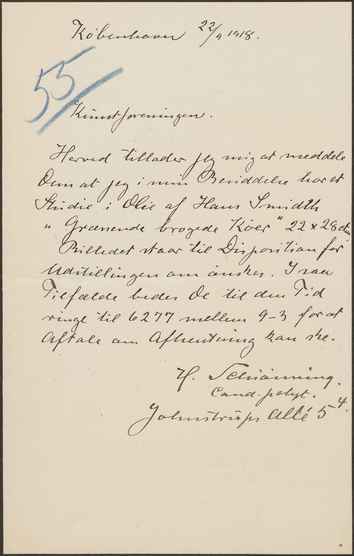 København 22/9 1918.
55
Kunstforeningen.
Herved tillader jeg mig at meddele
Dem at jeg i min Besiddelse har et
Studie i Olie af Hans Smidth
"Græssende brogede Køer" 22 x 28 cm
Billedet staar til Disposition for
Udstillingen om ønskes. I saa
Tilfælde bedes De til den Tid
ringe til 6277 mellem 9-3 for at
Aftale om Afhentning kan ske.
H. Schiønning.
Cand. polyt.
Johnstrups Allé 5 4.